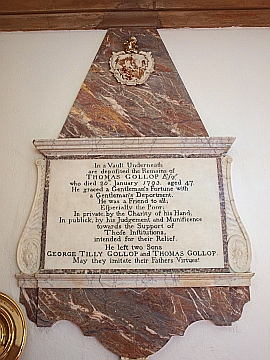 In a Vault Underneath
are deposited the Remains of
THOMAS GOLLOP Esqr
who died 20th January 1793. aged 47.
He graced a Gentleman's Fortune with
a Gentleman's Deportment.
He was a Friend to all;
Especially the Poor;
In private, by the Charity of his Hand,
In publick, by his Judgement and Munificence
towards the Support of
Those Institutions,
intended for their Relief.
He left two Sons
GEORGE TILLY GOLLOP and THOMAS GOLLOP.
May they imitate their Fathers Virtues!